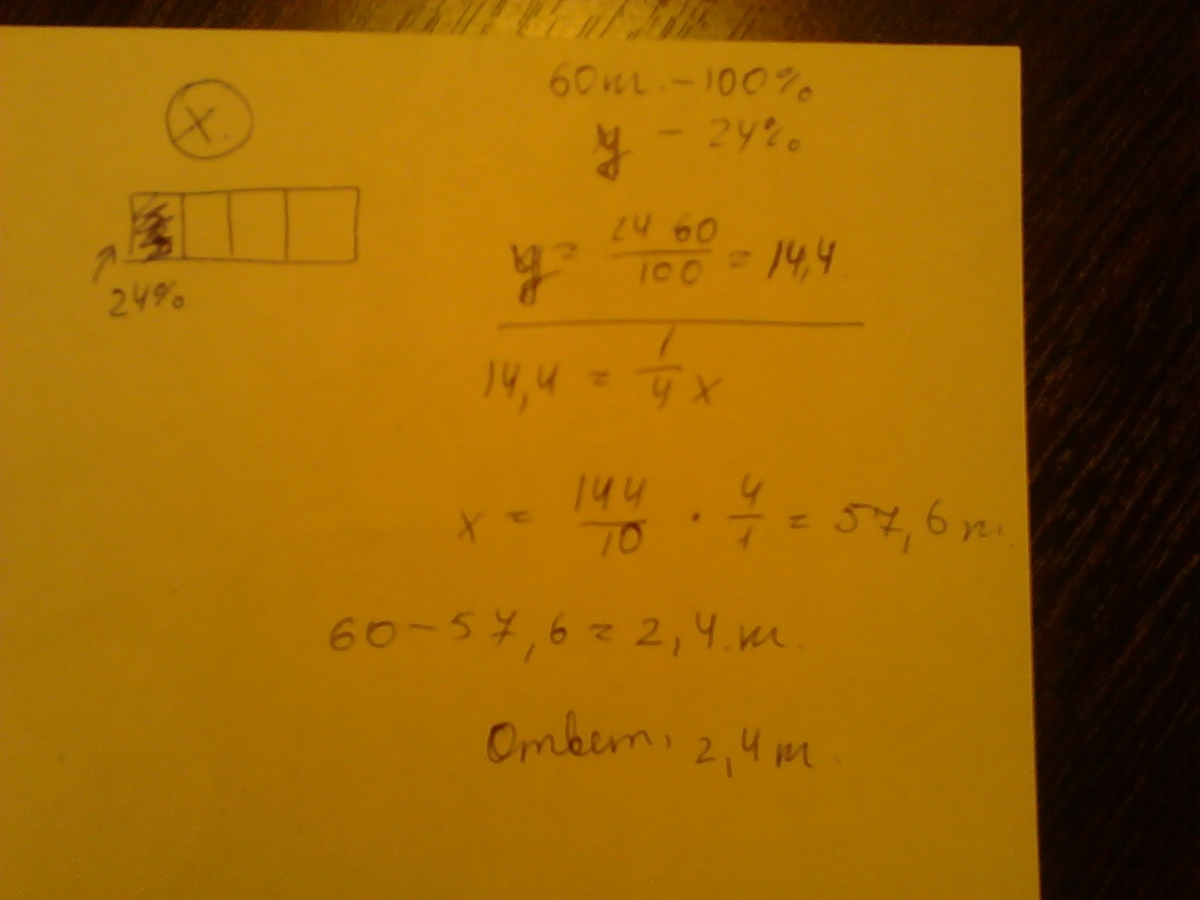 X.
24%
60т. - 100%
y - 24%
y = 24 60 / 100 = 14,4
14,4 = 1/4 x
x = 144/10 · 4/1 = 57,6 т.
60 - 57,6 = 2,4 т.
Ответ. 2,4 т.